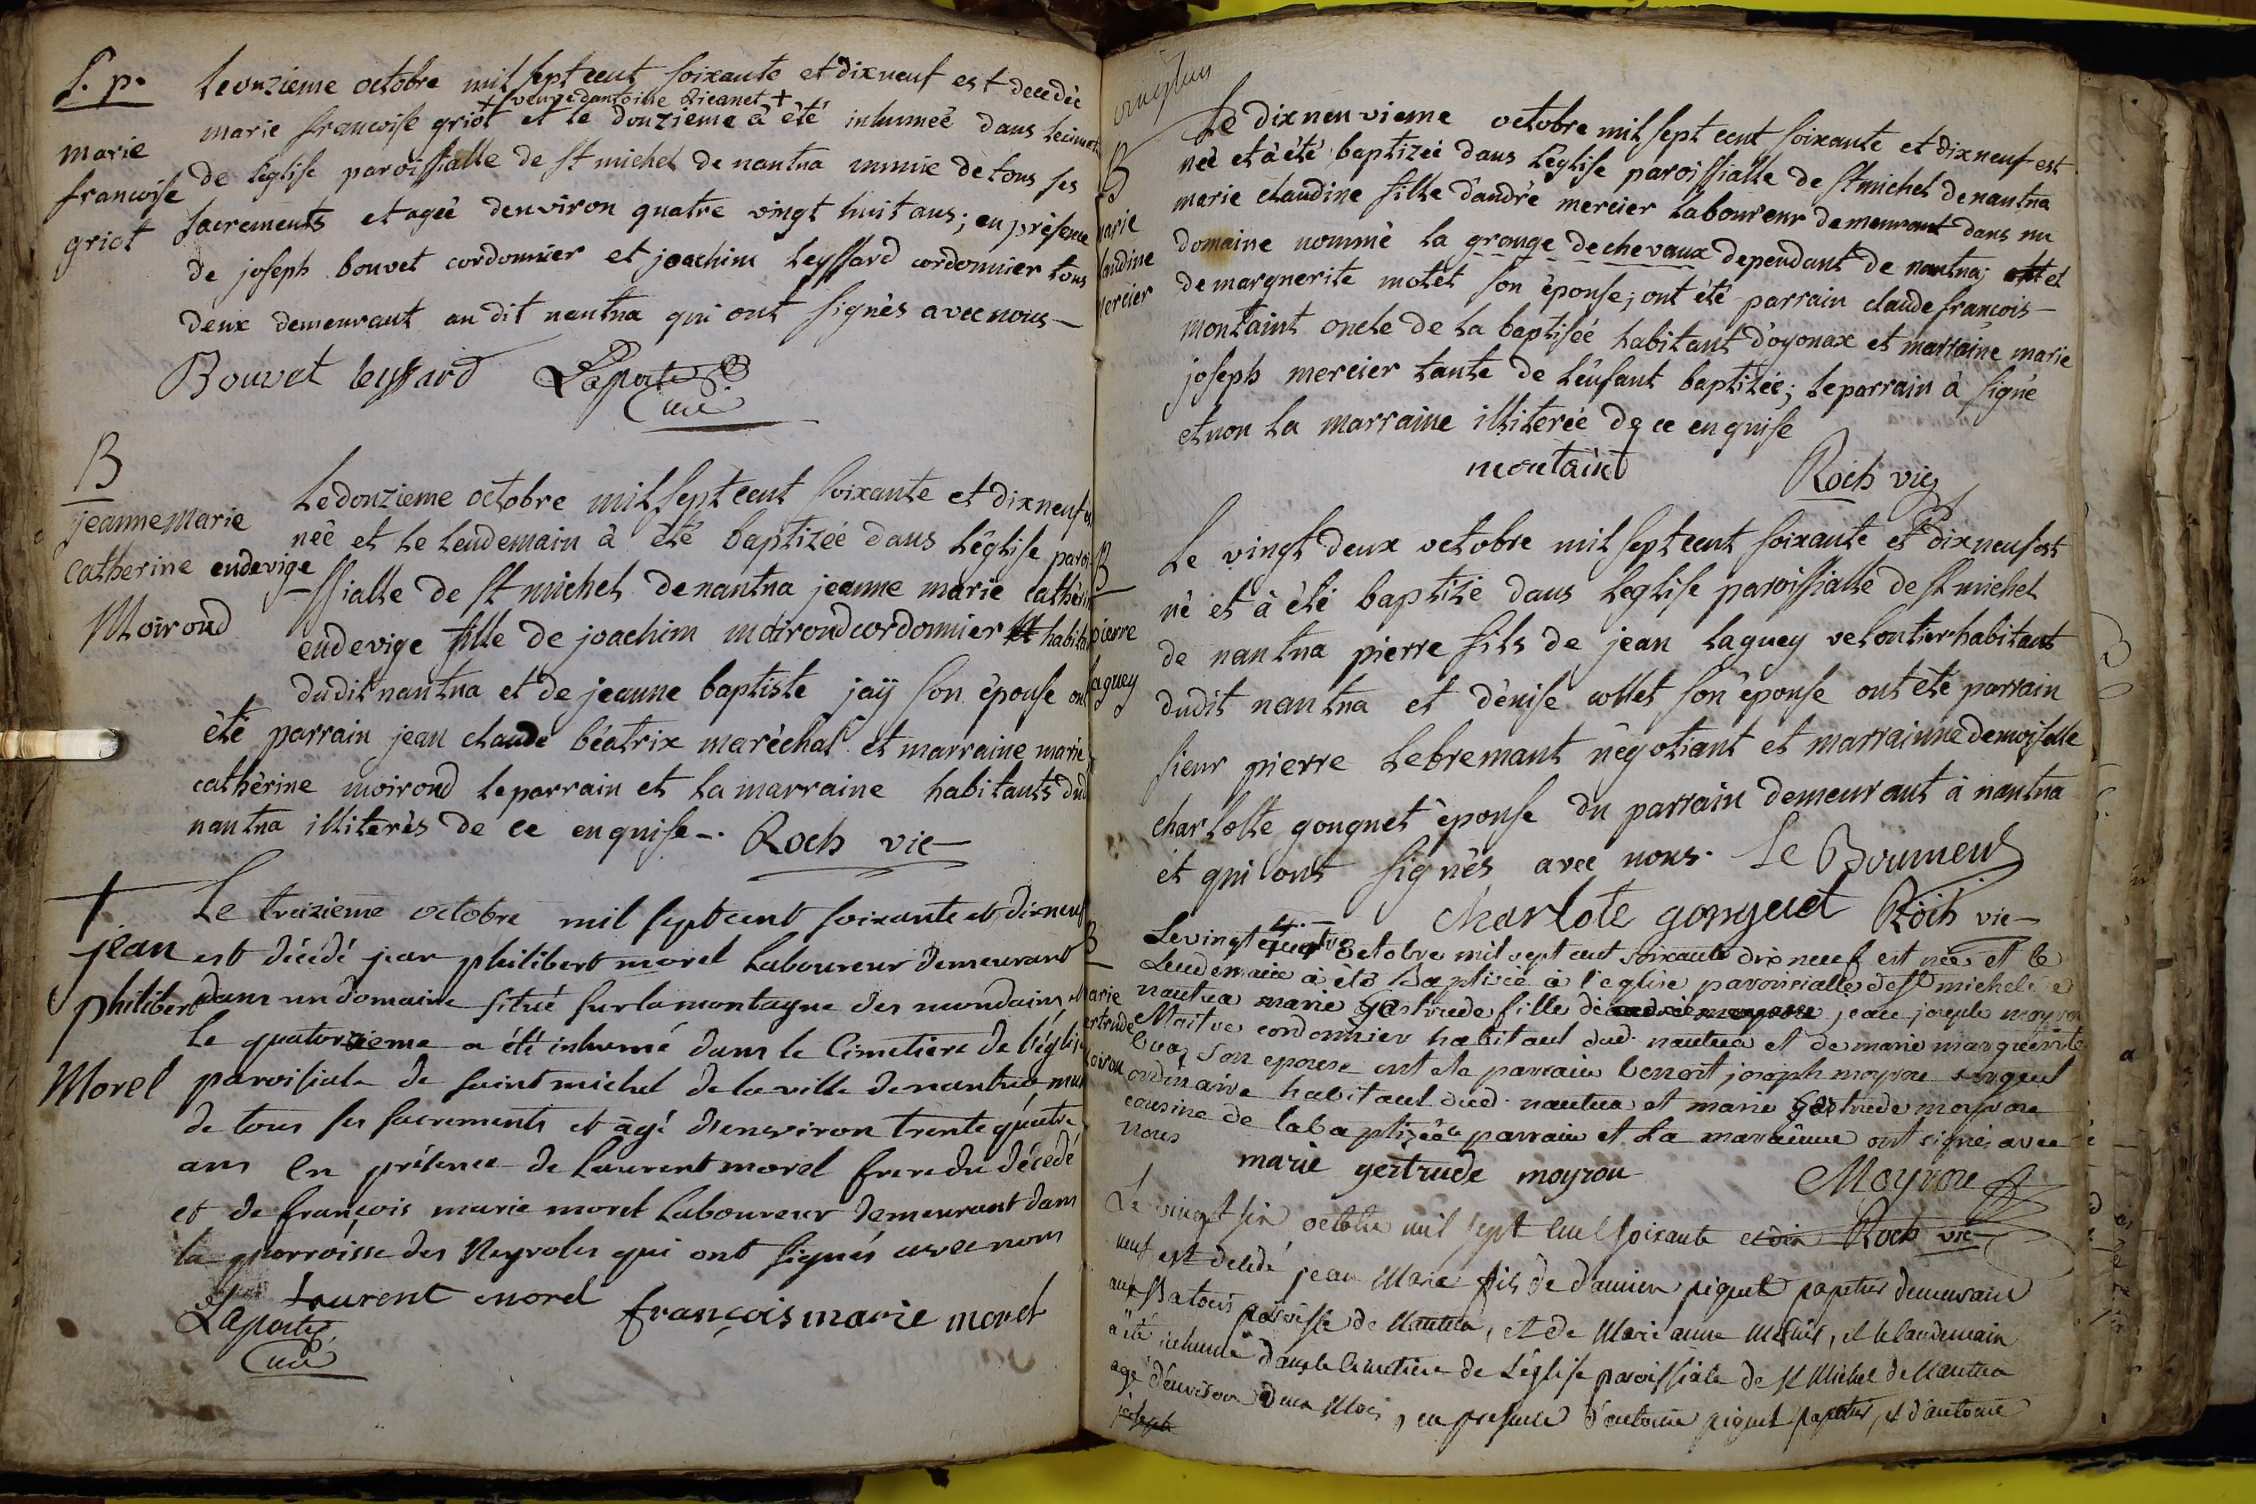 S. p.
marie
francoise
griot
Le onzieme octobre mil sept cent soixante et dix neuf est decedée
+ veuve dantoine +
marie francoise griot et le douzieme à été inhumeé dans le cimet
de l'eglise paroissialle de st michel de nantua munie de tous ses
sacrements et agée denviron quatre vingt huit ans; en présence
de joseph bouvet cordonnier et joachim leyssard cordonnier tous
deux demeurant au dit nantua qui ont signés avec nous —
Bouvet leyssard Laporte
Curé
B
jeanne marie
catherine endevige
Moiroud
Le douzieme octobre mil sept cent soixante et dix neuf est
neé et le lendemain à été baptizée dans l'église paroi
-ssialle de st michel de nantua jeanne marie cathérin
endevige fille de joachim moiroud cordonnier habitant
dudit nantua et de jeanne baptiste jaÿ son épouse ont
été parrain jean claude béatrix maréchal et marraine marie
cathérine moiroud le parrain et la marraine habitants dud
nantua illiterés de ce enquise -. Roch vic
†
jean
philibert
Morel
Le treizieme octobre mil sept cent soixante et dix neuf
est décédé jean philibert morel laboureur demeurant
dans un domaine situé sur la montagne des mondains et
le quatorzieme a été inhumé dans le Cimetiere de l'église
paroisiale de saint michel de la ville de nantua, muni
de tous ses sacrements et âgé d'environ trente quatre
ans en présence de laurent morel frere du décédé
et de françois marie morel laboureur demeurant dans
la parroisse des Neyroles qui ont signés avec nous
laurent morel françois marie morel
Laporte
Curé
B
marie
laudine
mercier
Le dix neuvieme octobre mil sept cent soixante et dix neuf est
neé et à été baptizeé dans l'église paroissialle de st michel de nantua
marie claudine fille d'andré mercier laboureur demeurant dans un
domaine nommé la grange de chevaux dependant de nantua; et
de marguerite motét son épouse; ont été parrain claude francois —
montaint oncle de la baptiseé habitant d'oyonax et marraine marie
joseph mercier tante de l'enfant baptizée; le parrain à signé
et non la marraine illiterée de ce enquise
montaint Roch vic
B
pierre
laguey
Le vingt deux octobre mil sept cent soixante et dix neuf est
né et à été baptizé dans l'eglise paroissialle de st michel
de nantua pierre fils de jean laguey velontier habitant
dudit nantua et dénise collet son épouse ont été parrain
sieur pierre lebremant négotiant et marrainne demoiselle
charlotte gouguet épouse du parrain demeurant à nantua
et qui ont signés avec nous. Le Boumeus
Charlote gonguet Roch vic
B
marie
gertrude
moirou
Le vingt quatre octobre mil sept cent soixante dix neuf est née et le
lendemain à été Baptisée à l'eglise paroissialle de st michel de
nantua marie gertrude fille de jean joseph moyrou
Maitre cordonnier habitant dud. nantua et de marie marguerite
son epouse ont ete parrain benoit joseph moyrou sergent
ordinaire habitant dud. nantua et marie gertrude moyrou
cousine de la baptizée le parrain et la marainne ont signés avec
nous
marie gertrude moyrou Moyrou
Roch vic
Le vingt six octobre mil sept cent soixante et dix
neuf est decedé jean Marie fils de damien piquet papetier demeurant
aux Batoirs paroisse de Nantua, et de Marie anne, et le landemain
a été inhumé dans le cimetiere de l'église paroissiale de st Michel de Nantua
agé d'environ deux Mois, en presence d'antoine piquet papetier, et d'antoine
joseph